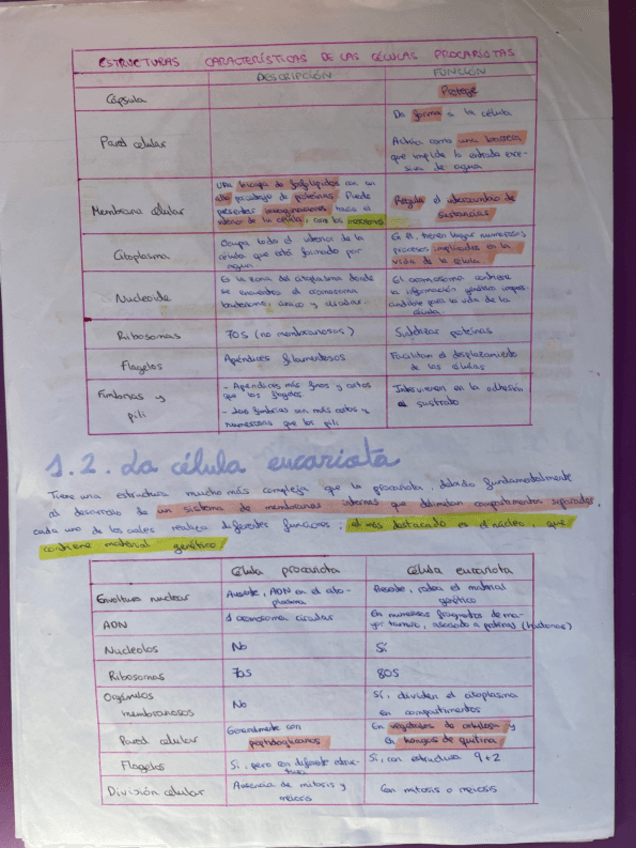 ESTRUCTURAS CARACTERÍSTICAS DE LAS CÉLULAS PROCARIOTAS
DESCRIPCIÓN FUNCIÓN
Cápsula Protege
Pared celular Da forma a la célula
Actúa como una barrera
que impide la entrada exce-
siva de agua
Membrana celular Una bicapa de fosfolípidos con un
alto porcentaje de proteínas. Puede
presentar invaginaciones hacia el
interior de la célula, como los mesosomas
Regula el intercambio de
sustancias
Citoplasma Ocupa todo el interior de la
célula que está formado por
agua
En él, tienen lugar numerosos
procesos implicados en la
vida de la célula
Nucleoide Es la zona del citoplasma donde
se encuentra el cromosoma
bacteriano, único y circular.
El cromosoma contiene
la información genética impres
cindible para la vida de la
célula
Ribosomas 70S (no membranosos)
Flagelos Apéndices filamentosos Facilitan el desplazamiento
de las células
Fimbrias y
pili
- Apéndices más finos y cortos
que los flagelos.
- Las fimbrias son más cortas y
numerosas que los pili
Intervienen en la adhesión
sustrato
1.2. La célula eucariota
Tiene una estructura mucho más compleja que la procariota, debido fundamentalmente
al desarrollo de un sistema de membranas internas que delimitan compartimentos separados,
cada uno de los cuales realiza diferentes funciones; el más destacado es el núcleo, que
contiene material genético.
Célula procariota Célula eucariota
Envoltura nuclear Ausente, ADN en el cito-
plasma
el material
genético
ADN 1 cromosoma circular En numerosos fragmentos de ma-
yor tamaño, asociado a proteínas (histonas)
Nucleolos No Sí
Ribosomas 70S 80S
Orgánulos
membranosos
No
Sí, dividen el citoplasma
en compartimentos
Pared celular Generalmente con
peptidoglicanos
En vegetales de celulosa y
en hongos de quitina
Flagelos Si, pero con diferente estruc-
tura
Si, con estructura 9+2
División celular Ausencia de mitosis y
meiosis
Con mitosis o meiosis